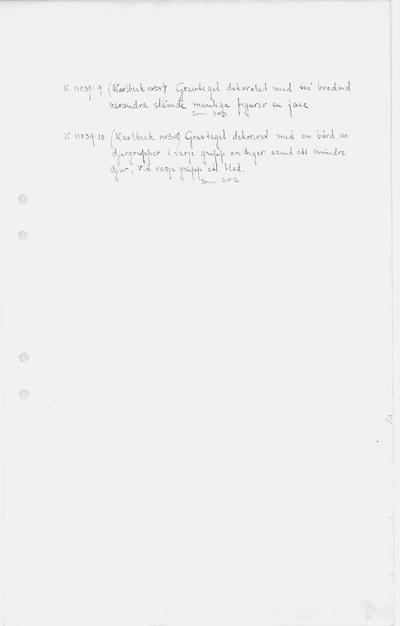 K 11039:9 (Karlbeck nr 3v) Gravtegel dekorerat med två bredvid
varandra stående manliga figurer en face.
K. 11039:10 (Karlbeck nr 3v) Gravtegel dekorerat med en bård av
djurgrupper i varje grupp en tiger samt ett mindre
djur, vid varje grupp ett blad.